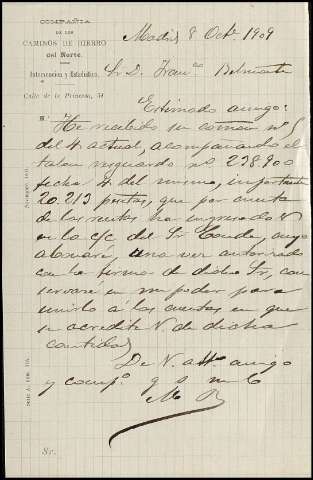 COMPAÑIA
DE LOS
CAMINOS DE HIERRO
del Norte.
Intervención y Estadística.
Calle de la Princesa,
Madrid 8 Octe 1909
Sr. D. Franco Belmonte
Estimado amigo:
He recibido su comon nº 5
del 4 actual, acompañando el
talon resguardo nº 238.900
fecha 4 del mismo, importante
20.213 pesetas, que por cuenta
de los ha ingresado V.
en la c/c del Sr Conde, cuyo
una vez autorizado
con la firma de dicho Sr, con
servaré en mi poder para
unirlo á las cuentas en que
se acredite V. de dicha
cantidad
De V. atto. amigo
y compo. q s m b
M R
Sr.